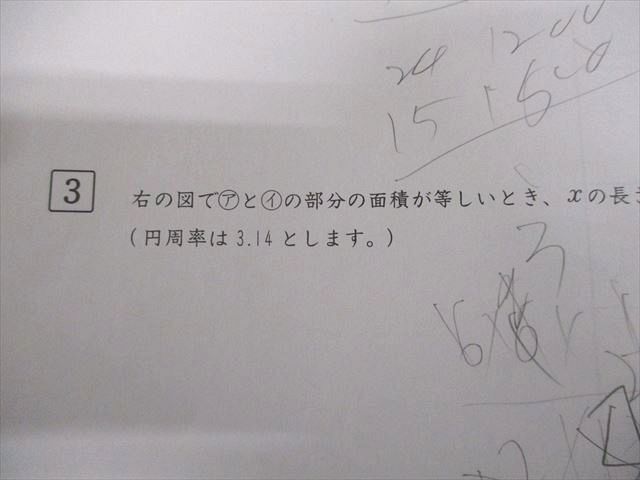 24 1200
15 1500
3
右の図で㋐と㋑の部分の面積が等しいとき、xの長
(円周率は3.14とします。)
3